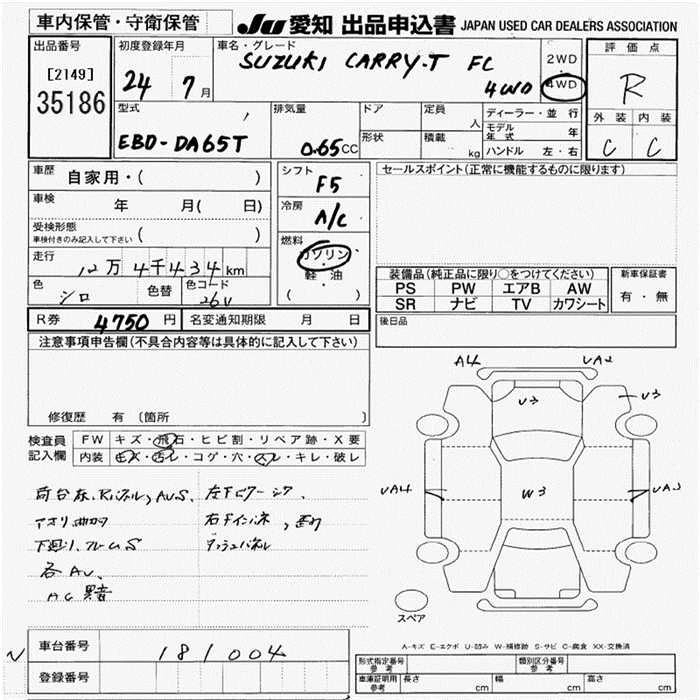 車内保管・守衛保管
JU 愛知 出品申込書 JAPAN USED CAR DEALERS ASSOCIATION
出品番号
[2149]
35186
初度登録年月
24 7月
車名・グレード
SUZUKI CARRY-T FC
4WD
2WD
4WD
評価点
R
外装 内装
C C
型式
EBD-DA65T
排気量
0.65CC
ドア
形状
定員
人
積載
kg
ディーラー・並行
モデル年式 年
ハンドル 左・右
車歴 自家用・( )
車検 年 月( 日)
受検形態
車検付きのみ記入して下さい ( )
走行 12万4千434km
色 シロ
色替
色コード
26V
シフト
F5
冷房
A/C
燃料
ガソリン
・
軽・油
( )
セールスポイント(正常に機能するものに限ります)
装備品(純正品に限り○をつけてください)
PS PW エアB AW
SR ナビ TV カワシート
新車保証書
有・無
後日品
R券 4750円
名変通知期限 月 日
注意事項申告欄(不具合内容等は具体的に記入して下さい)
修復歴 有 〔箇所 〕
検査員記入欄
FW キズ・飛石・ヒビ割・リペア跡・X要
内装 キズ・汚レ・コゲ・穴・スレ・キレ・破レ
アオリ曲
下廻り、フレームS
各AU、
AC異音
ダッシュパネル
A4 UA2
U3 U3
UA4 W3 UA3
スペア
A-キズ E-エクボ U-凹み W-補修跡 S-サビ C-腐食 XX-交換済
N
車台番号 181004
登録番号
形式指定番号参考
類別区分番号参考
車庫証明用参考 長さ cm 幅 cm 高さ cm